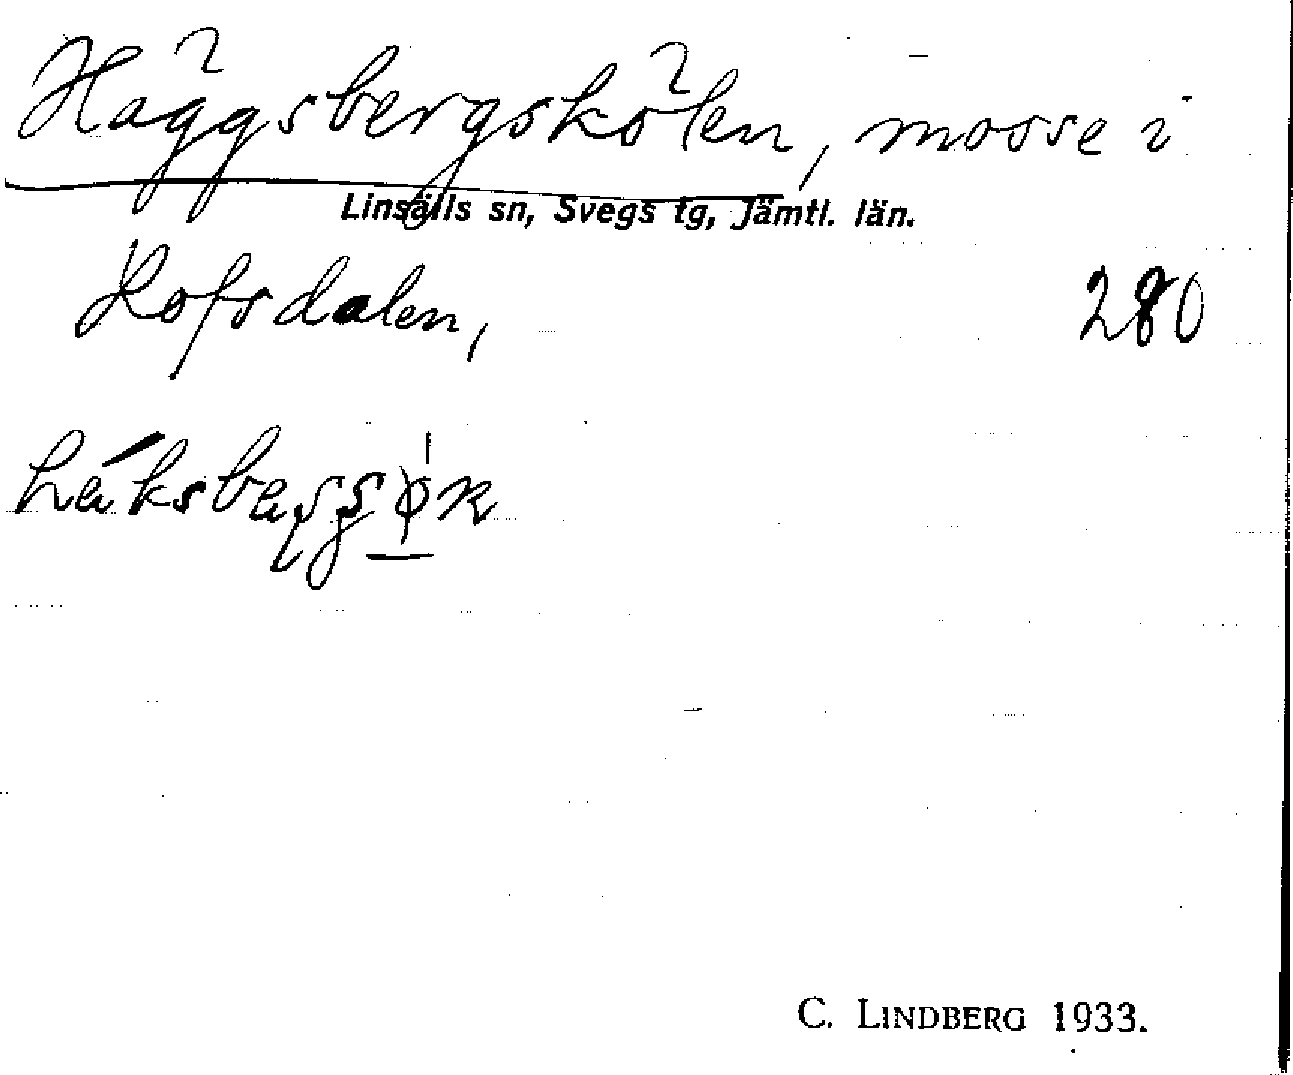 Häggsbergskölen, mosse i
Linsälls sn, Svegs tg, Jämtl. län.
Lofsdalen, 280
C. LINDBERG 1933.